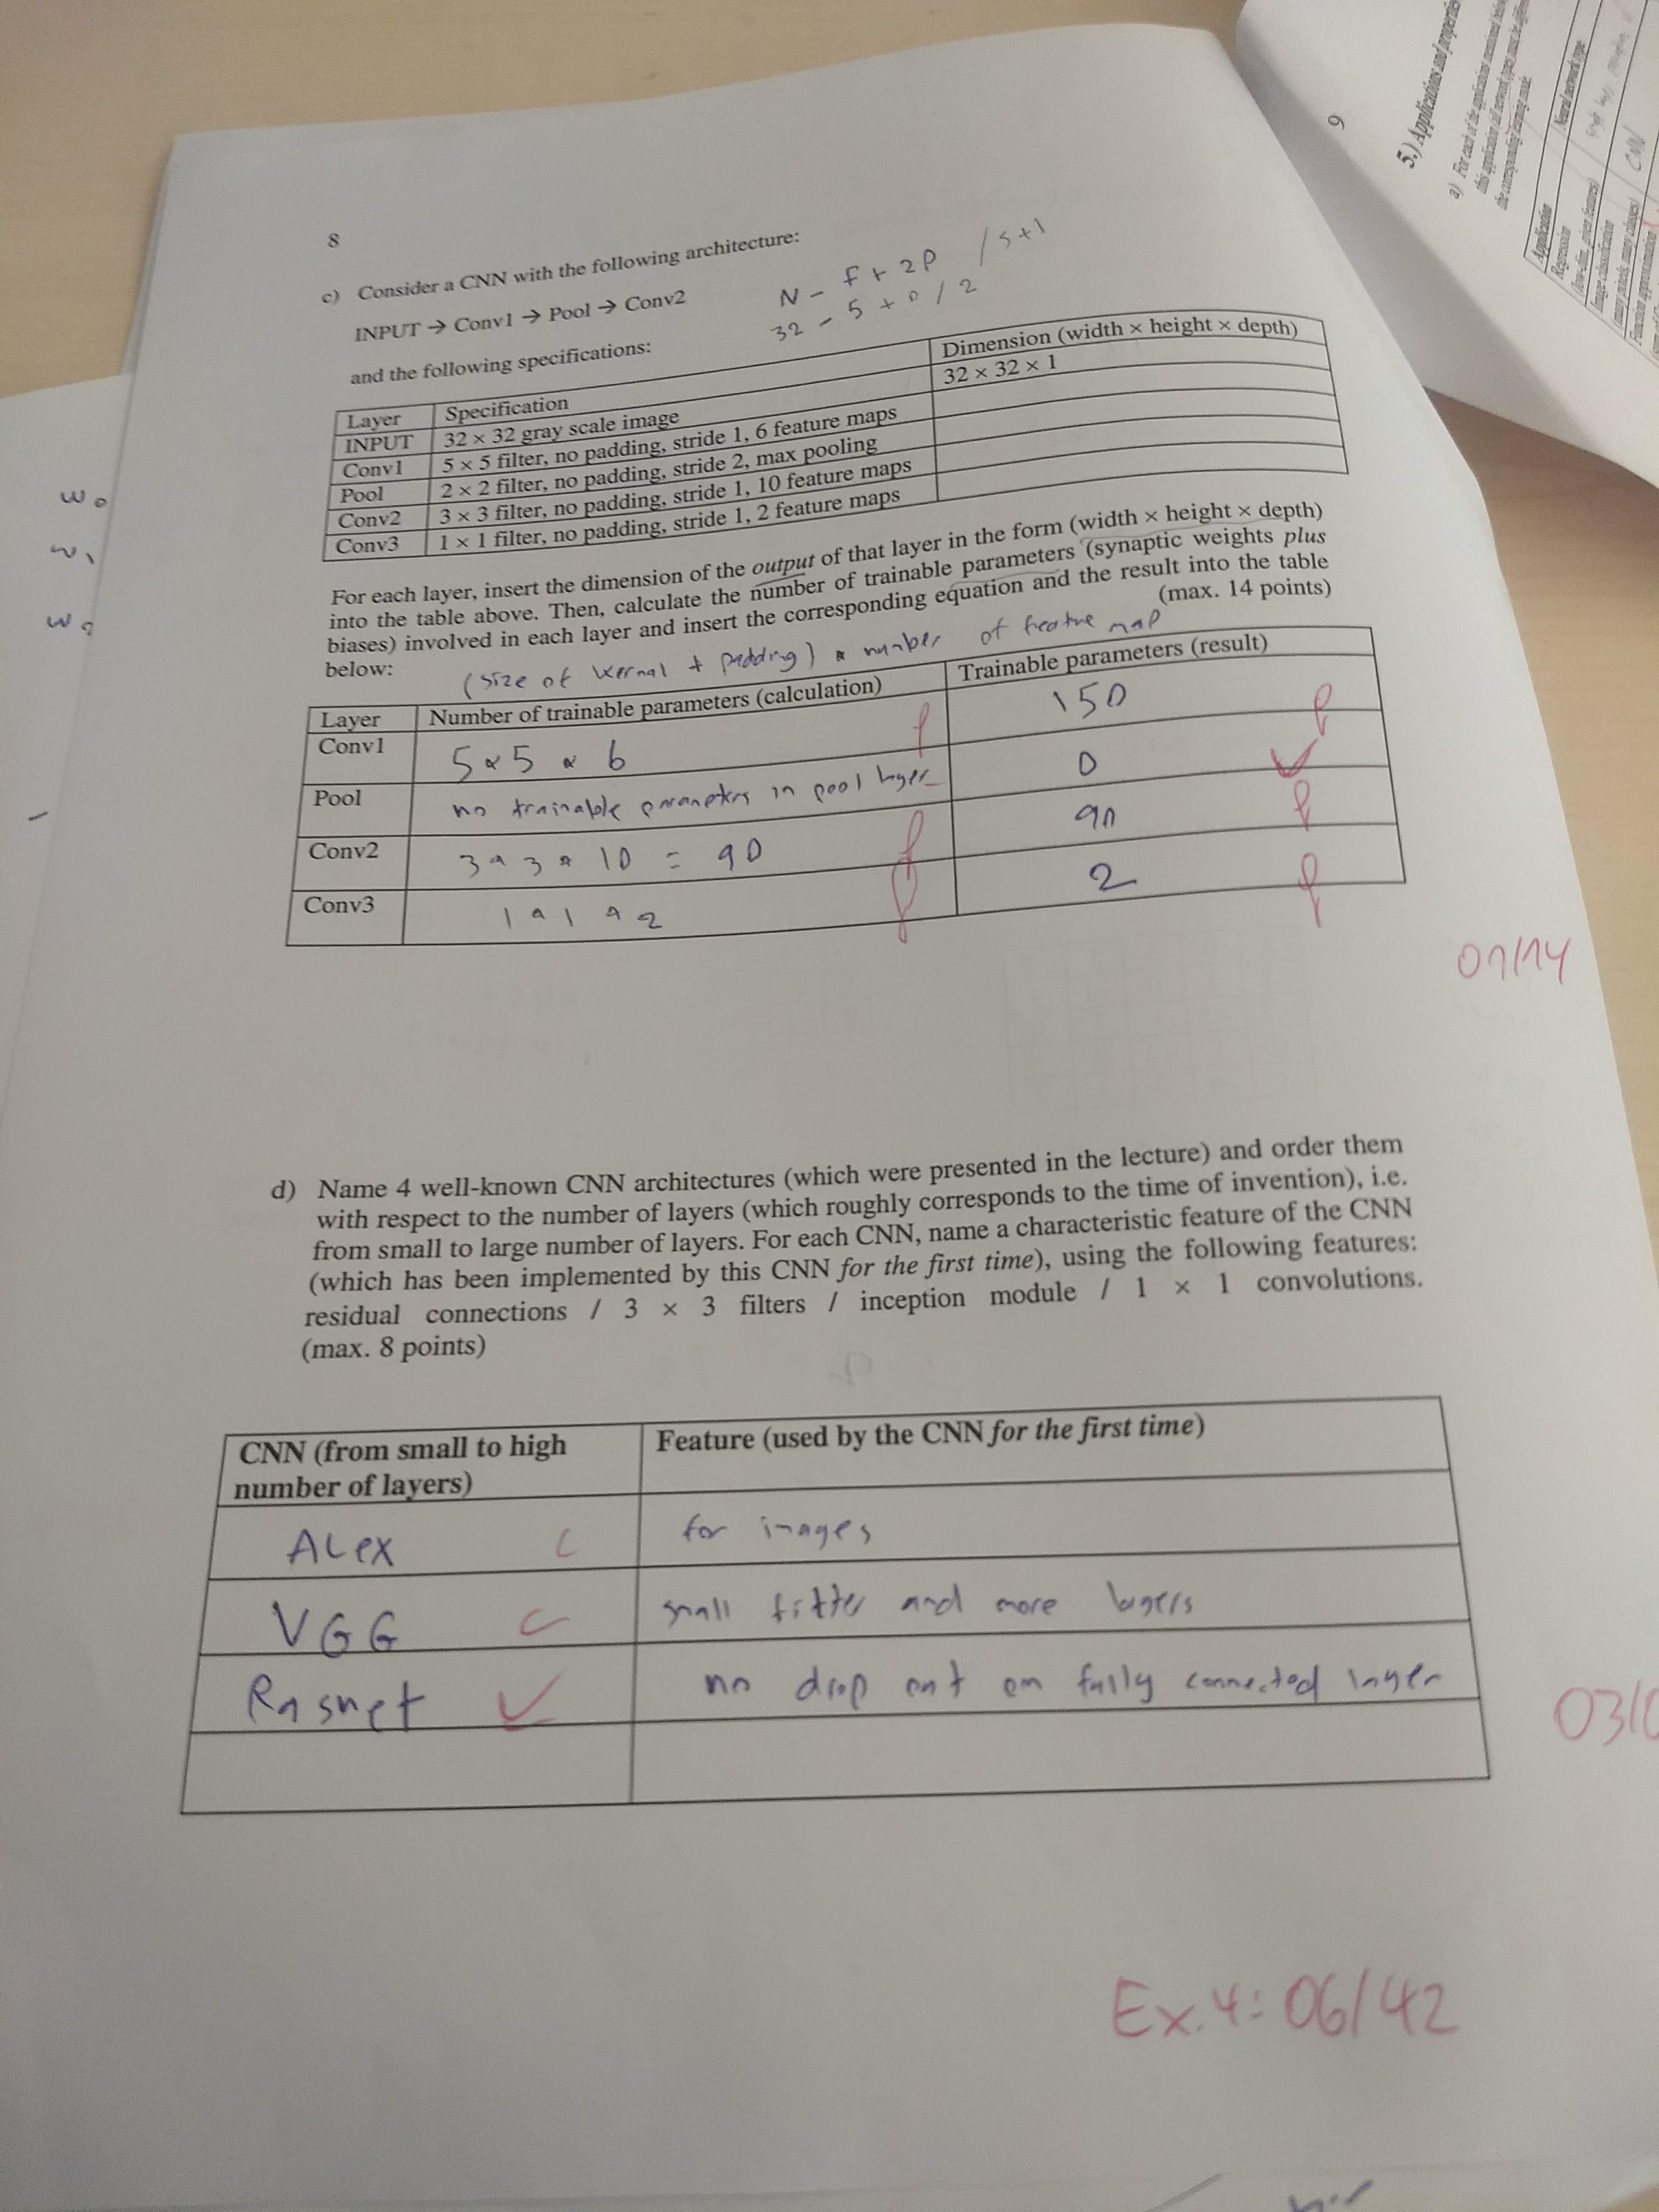 8
c) Consider a CNN with the following architecture:
INPUT → Conv1 → Pool → Conv2
N - F + 2P / S+1
32 - 5 + 0 / 2
and the following specifications:
Layer Specification Dimension (width × height × depth)
INPUT 32 × 32 gray scale image 32 × 32 × 1
Conv1 5 × 5 filter, no padding, stride 1, 6 feature maps
Pool 2 × 2 filter, no padding, stride 2, max pooling
Conv2 3 × 3 filter, no padding, stride 1, 10 feature maps
Conv3 1 × 1 filter, no padding, stride 1, 2 feature maps
For each layer, insert the dimension of the output of that layer in the form (width × height × depth)
into the table above. Then, calculate the number of trainable parameters (synaptic weights plus
biases) involved in each layer and insert the corresponding equation and the result into the table
below: (max. 14 points)
(size of kernal + padding) * number of featue map
Layer Number of trainable parameters (calculation) Trainable parameters (result)
Conv1 5*5 * 6 f 150 f
Pool no trainable parameters in pool layer 0 ✓
Conv2 3*3*10 = 90 f 90 f
Conv3 1*1*2 f 2 f
01/14
d) Name 4 well-known CNN architectures (which were presented in the lecture) and order them
with respect to the number of layers (which roughly corresponds to the time of invention), i.e.
from small to large number of layers. For each CNN, name a characteristic feature of the CNN
(which has been implemented by this CNN for the first time), using the following features:
residual connections / 3 × 3 filters / inception module / 1 × 1 convolutions.
(max. 8 points)
CNN (from small to high
number of layers)
Feature (used by the CNN for the first time)
ALex for images
VGG small filter and more layers
Rasnet ✓ no drop out on fully connected layer
03/0
Ex.4: 06/42
w0
w1
9
5.) Applications and properties
a) For each of the applications mentioned
the corresponding learning mode
Application Neural network type
Regression
(low-dim., given features)
Image classification CNN
Function approximation